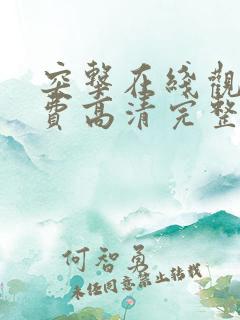 突擊在綫觀
費高清完整
何智勇
未经同意禁止转载